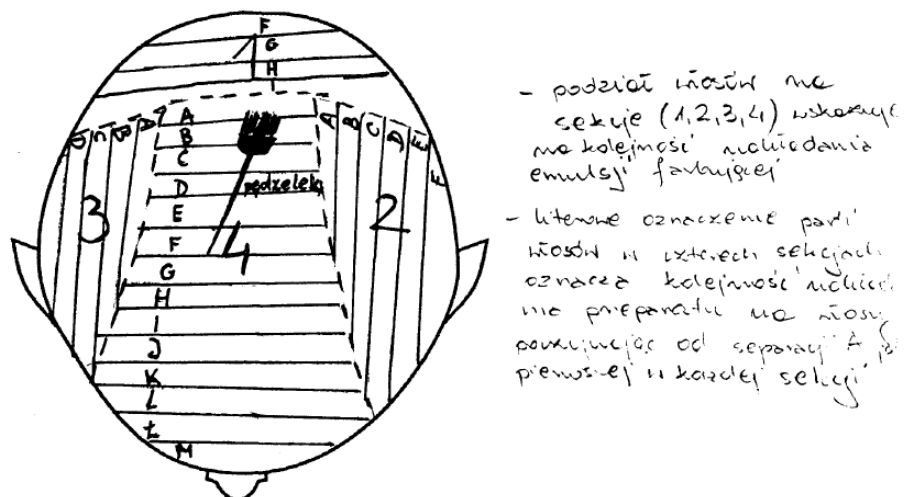 F
G
1
H
I
A
B
C
D
pędzelek
E
F
4
G
H
I
J
K
L
Ł
M
D
C
B
A
3
A
B
C
D
E
F
2
- podział włosów na
sekcje (1,2,3,4) wskazuje
na kolejność nakładania
emulsji farbującej
- literowe oznaczenie partii
włosów w czterech sekcjach
oznacza kolejność
nia preparatu na włosy
od separacji A
pierwszej w każdej sekcji